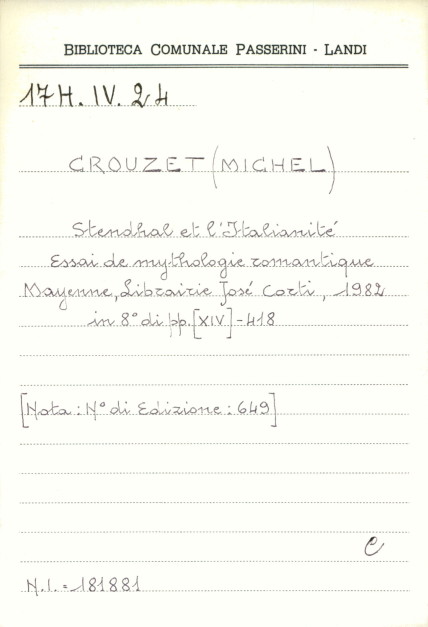 BIBLIOTECA COMUNALE PASSERINI - LANDI
17H. IV. 24
CROUZET (MICHEL)
Stendhal et l'Italianité
Essai de mythologie romantique
Mayenne, Librairie José Corti, 1982
in 8° di pp. [XIV] - 418
[Nota : N° di Edizione : 649]
C
N.I. = 181881